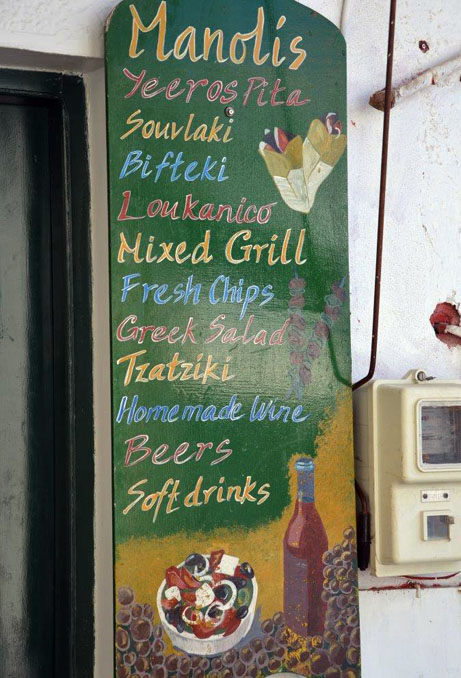 Manolis
Yeeros Pita
Souvlaki
Bifteki
Loukanico
Mixed Grill
Fresh Chips
Greek Salad
Tzatziki
Homemade Wine
Beers
Soft drinks